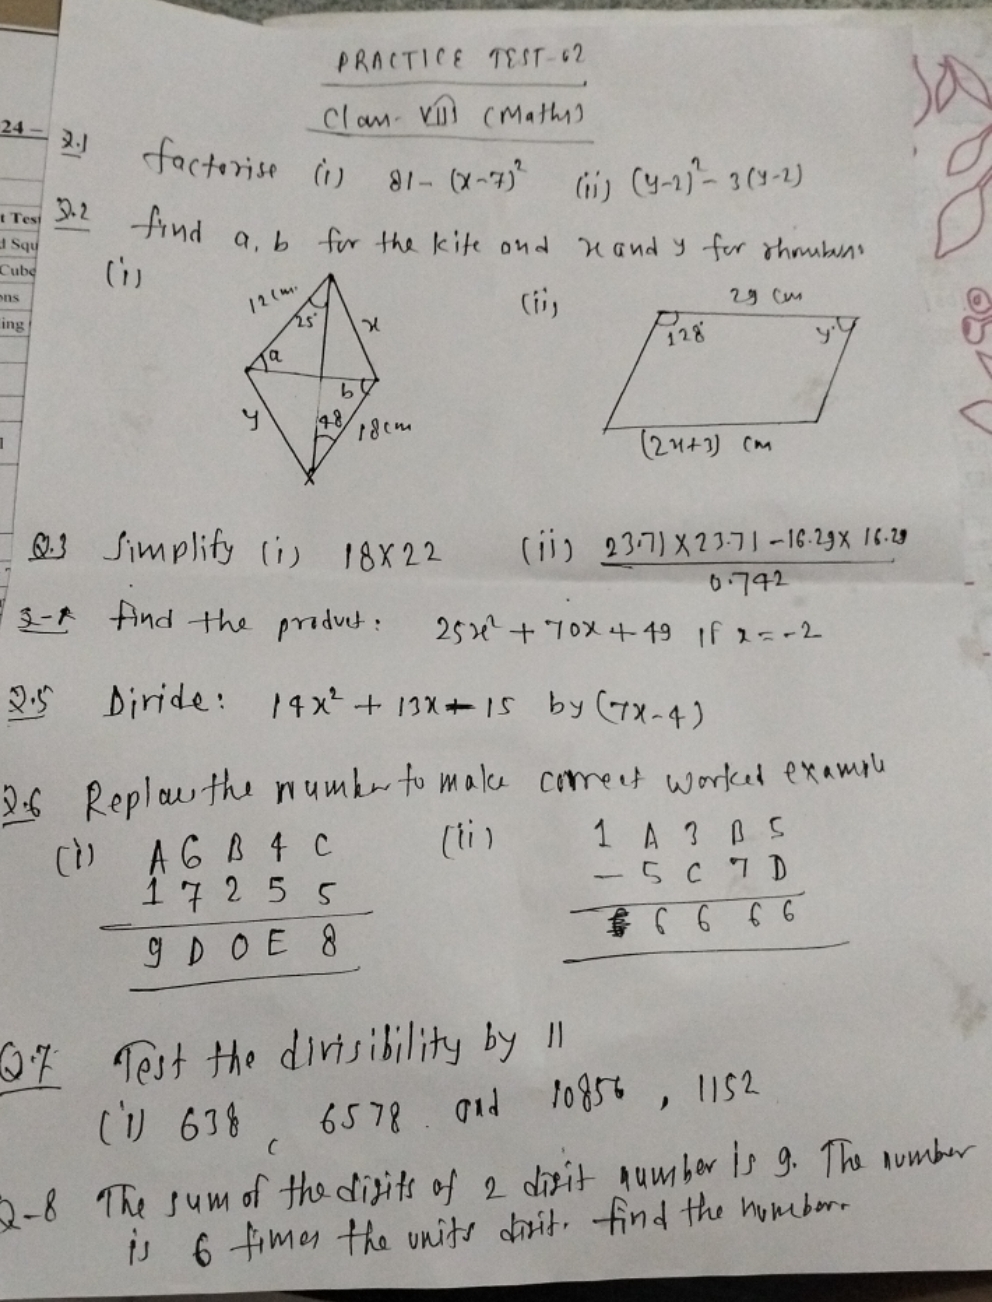 PRACTICE TEST-02
Class-VIII (Maths)
24 –
Q.1 factorise (i) 81 - (x-7)² (ii) (y-2)² - 3(y-2)
t Test
Q.2 find a, b for the kite and x and y for rhombus
d Squ
Cube
ons
ing
(i)
12 cm. 25° x
a b
y 48 18cm
(ii)
29 cm
128° y
(2x+3) cm
Q.3 Simplify (i) 18X22 (ii) 23.71 X 23.71 - 16.29 X 16.29
0.742
find the product: 25x² + 70x + 49 if x = -2
Q.5 Divide: 14x² + 13x - 15 by (7x-4)
Q.6 Replace the number to make correct worked example
(i) A 6 B 4 C
1 7 2 5 5
9 D 0 E 8
(ii) 1 A 3 B 5
- 5 C 7 D
6 6 6 6
Q.7 Test the divisibility by 11
(i) 638, 6578 and 10856, 1152
Q-8 The sum of the digits of 2 digit number is 9. The number
is 6 times the units digit. find the number.